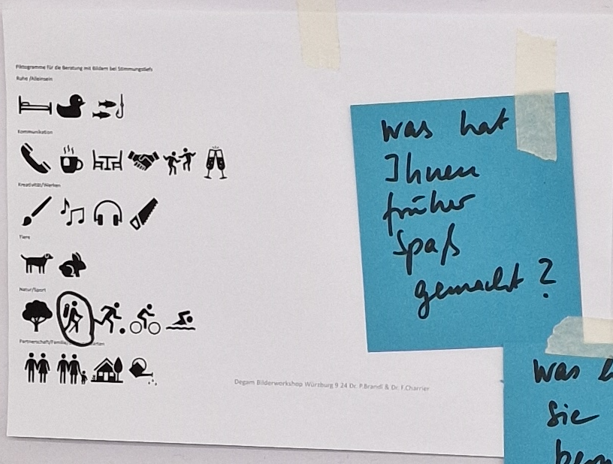 Piktogramme für die Beratung mit Bildern bei Stimmungstiefs
Ruhe /Alleinsein
Kommunikation
Kreativität/Werken
Tiere
Natur/Sport
Partnerschaft/Familie/
Degam Bilderworkshop Würzburg 9 24 Dr. P.Brandl & Dr. F.Charrier
Was hat
Ihnen
früher
Spaß
gemacht?
Was
Sie